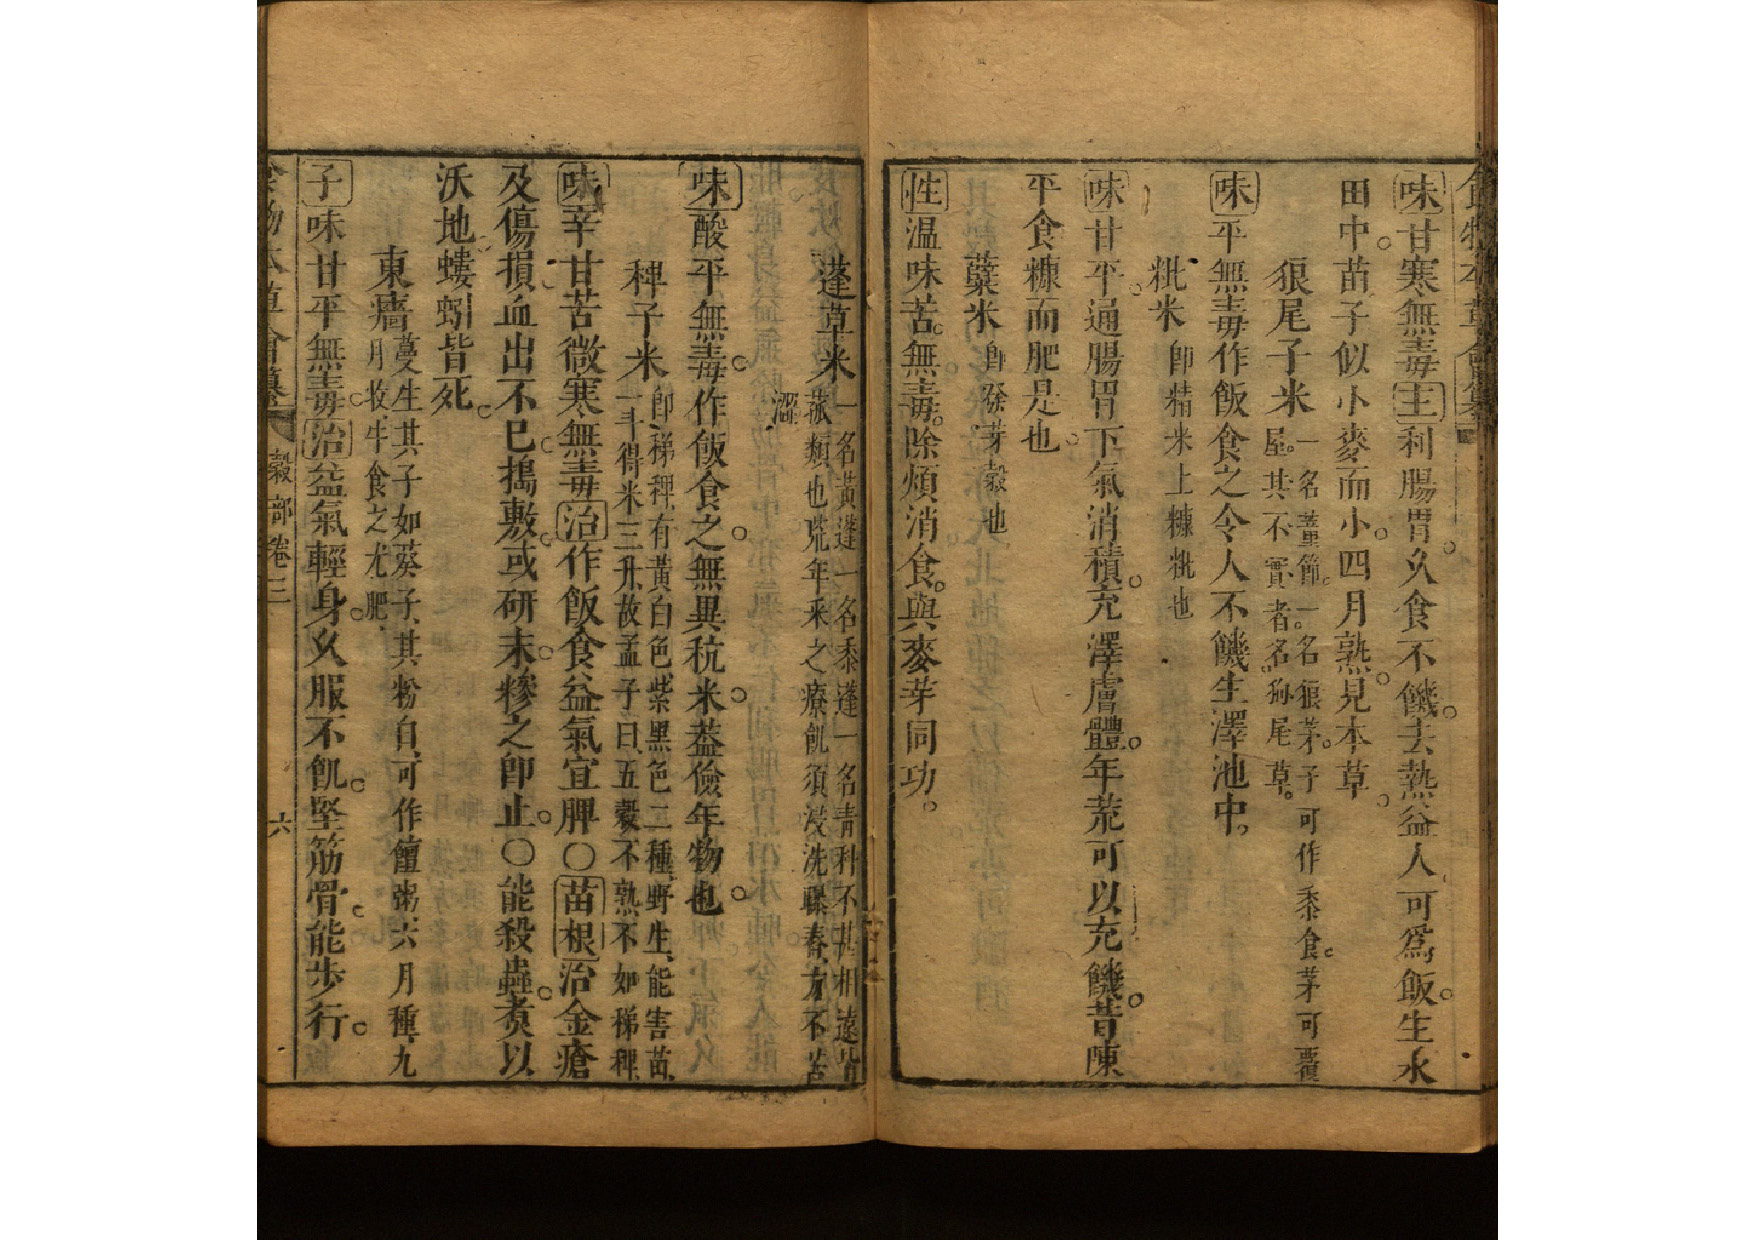 食物本草會纂
味甘寒無毒主利腸胃。久食不饑。去熱益人可爲飯。生水
田中。苗子似小麥而小。四月熟。見本草。
狼尾子米一名蕫節。一名狼茅。子可作黍食。茅可覆
屋。其不實者名狗尾草。
味平無毒作飯食之令人不饑生澤池中。
粃米卽精米上糠粃也
味甘平。通腸胃下氣消積。充澤膚體。年荒可以充饑。昔陳
平食糠而肥是也。
蘖米卽發芽穀也
性溫味苦。無毒。除煩消食。與麥芽同功。
蓬草米一名黃蓬一名黍蓬一名青科不甚相遠皆
菰類也荒年采之療飢須浸洗曝舂方不苦
澀
味酸平無毒。作飯食之。無異秔米。葢儉年物也。
稗子米卽稊稗有黃白色紫黑色二種野生能害苗
一斗得米三升故孟子曰五穀不熟不如稊稗
味辛甘苦微寒無毒治作飯食益氣宜脾○苗根治金瘡
及傷損。血出不已。搗敷。或研末。糝之卽止。○能殺蟲。煮以
沃地螻蚓皆死。
東廧蔓生其子如葵子其粉白可作饘粥六月種九
月收牛食之尤肥
子味甘平無毒。治益氣輕身。久服不飢。堅筋骨。能步行。
食物本草會纂 穀部卷三 六